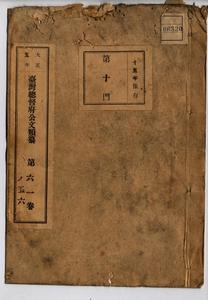 大正五年
臺灣總督府公文類纂
第六一卷
十五年保存
第十門
00320